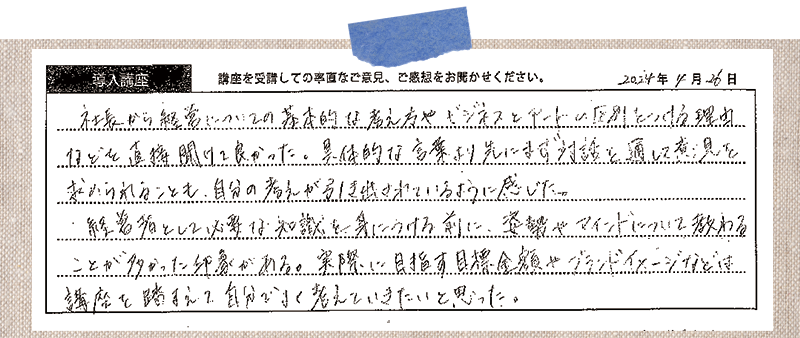 導入講座
講座を受講しての率直なご意見、ご感想をお聞かせください。
2024年 4月 26日
社長から経営についての基本的な考え方やビジネスとアートの区別をつける理由
などを直接聞けて良かった。具体的な言葉より先にまず対話を通して意見を
求められることも、自分の考えが引き出されているように感じた。
経営者として必要な知識を身につける前に、姿勢やマインドについて教わる
ことが多かった印象がある。実際に目指す目標金額やブランドイメージなどは
講座を踏まえて自分でよく考えていきたいと思った。